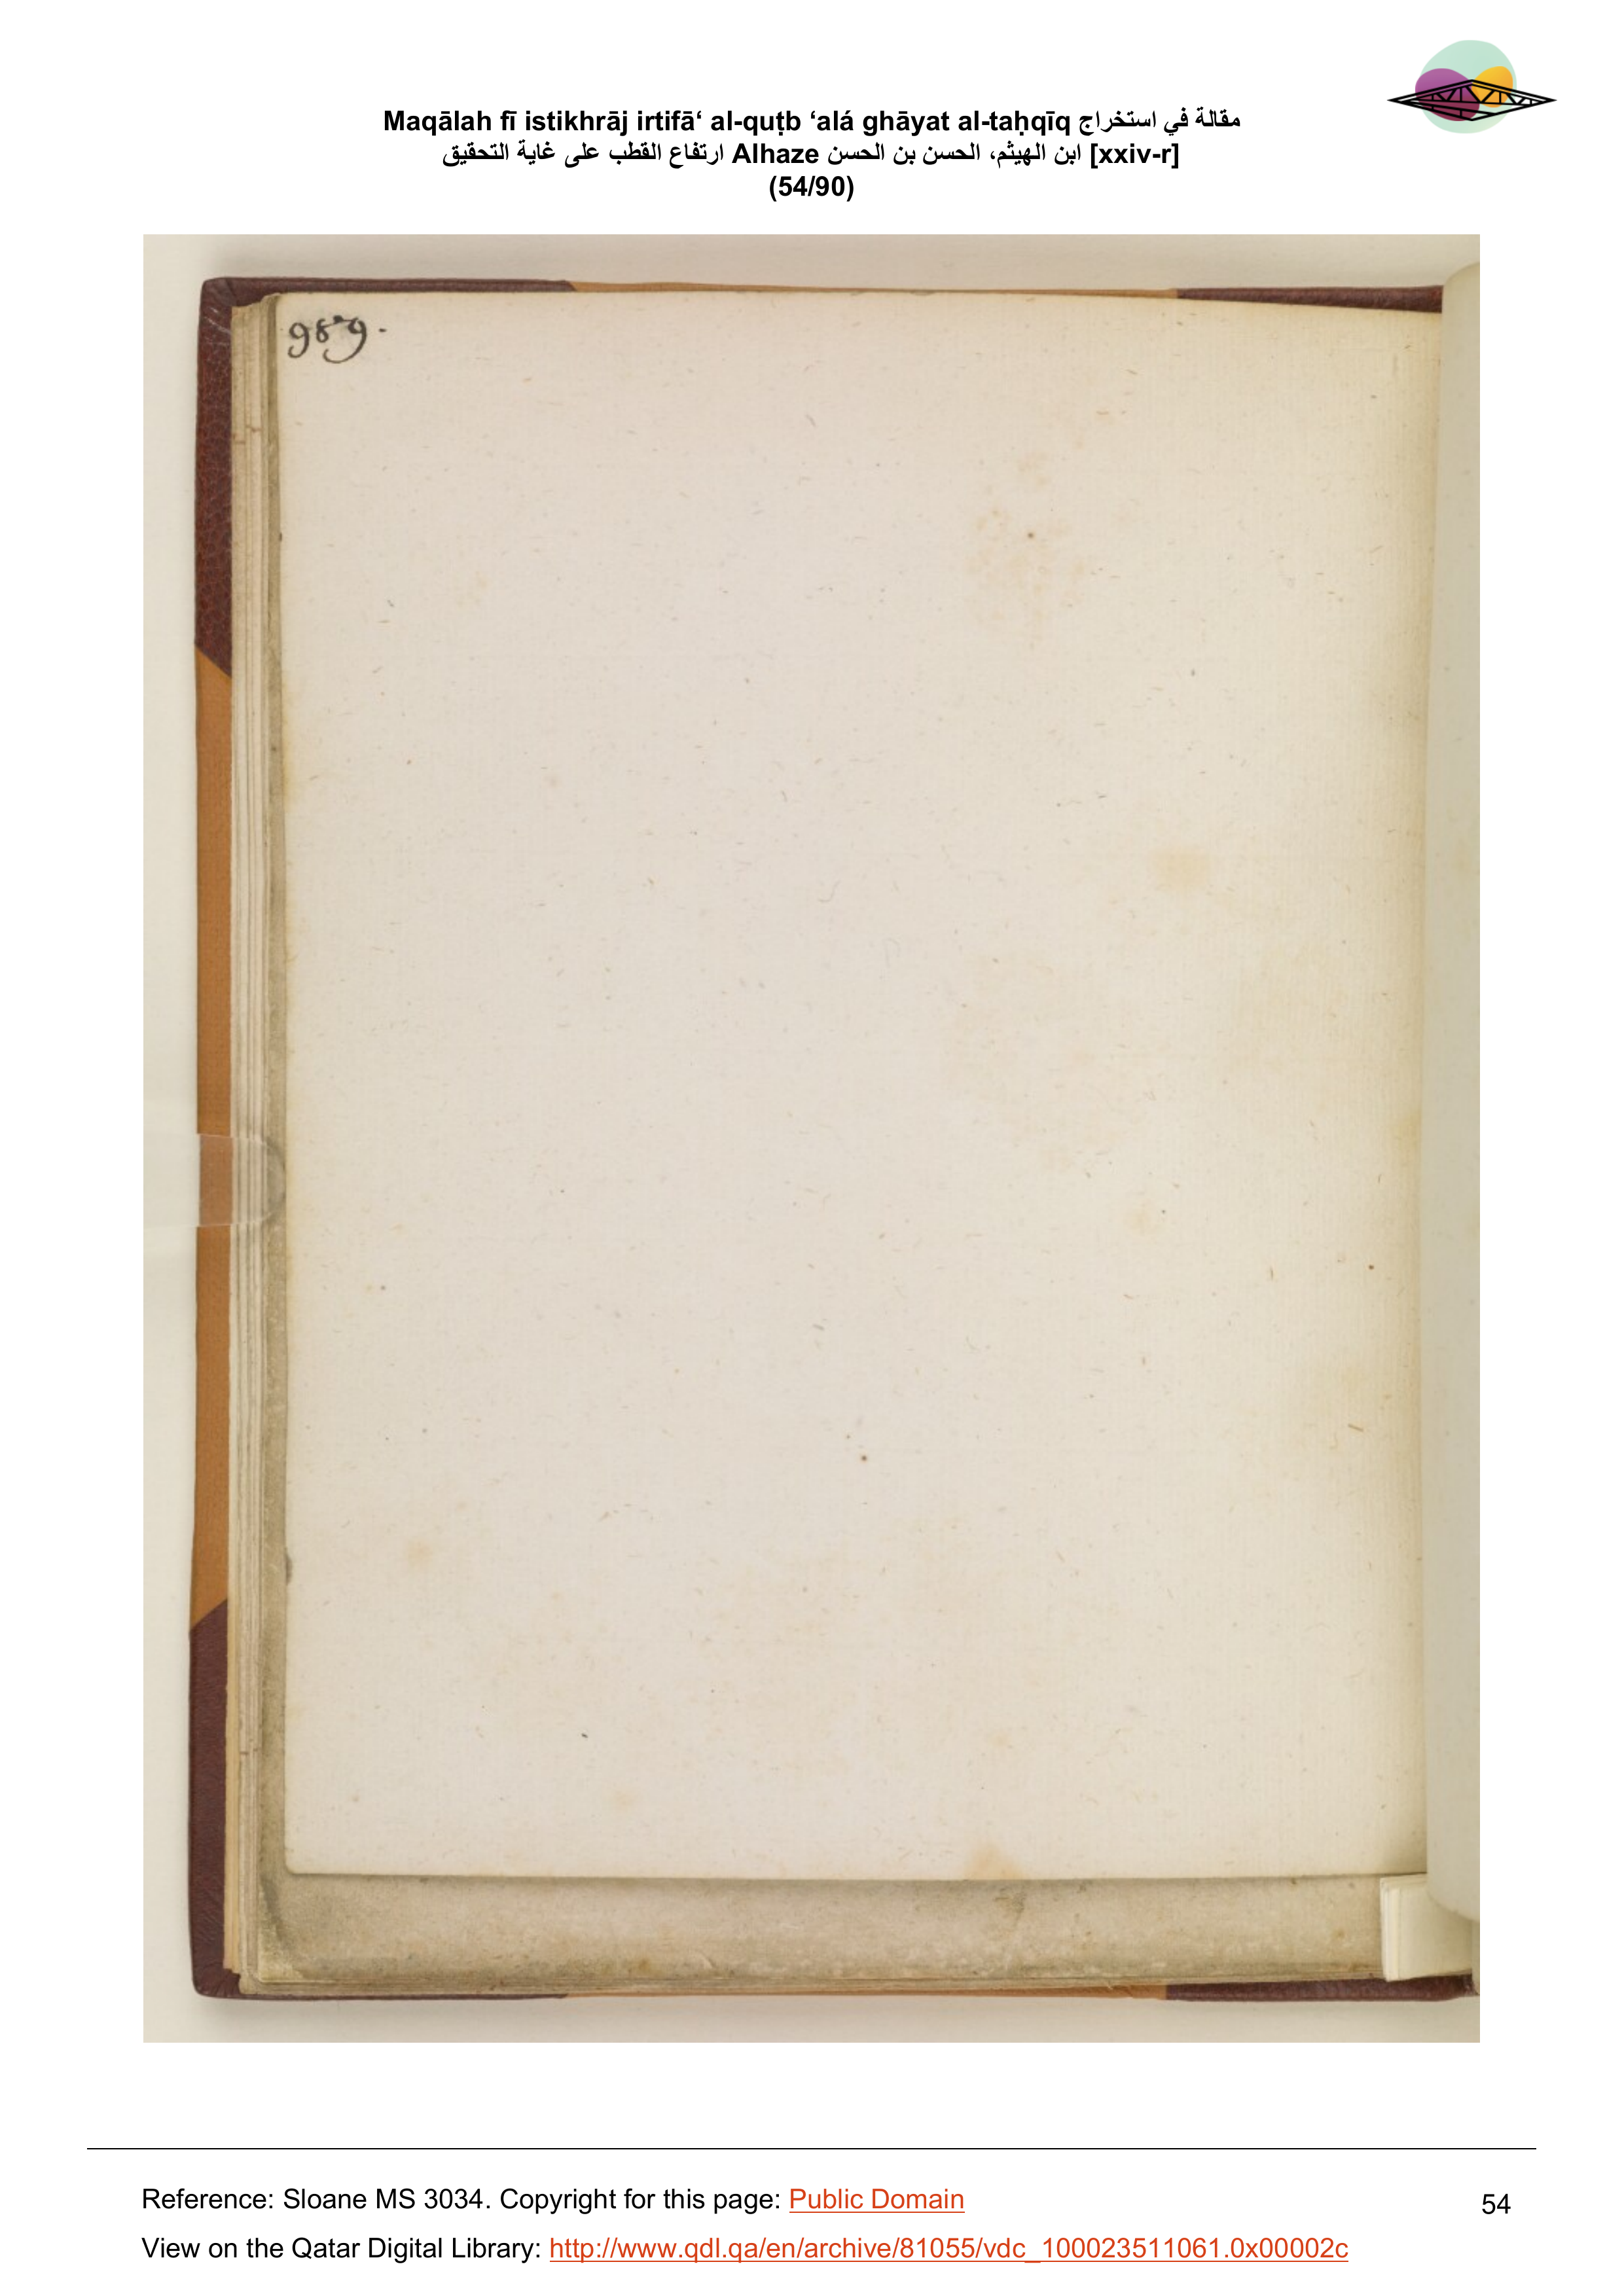 Maqālah fī istikhrāj irtifā‘ al-quṭb ‘alá ghāyat al-taḥqīq مقالة في استخراج
ارتفاع القطب على غاية التحقيق Alhaze ابن الهيثم، الحسن بن الحسن [xxiv-r]
(54/90)
989.
Reference: Sloane MS 3034. Copyright for this page: Public Domain
54
View on the Qatar Digital Library: http://www.qdl.qa/en/archive/81055/vdc_100023511061.0x00002c